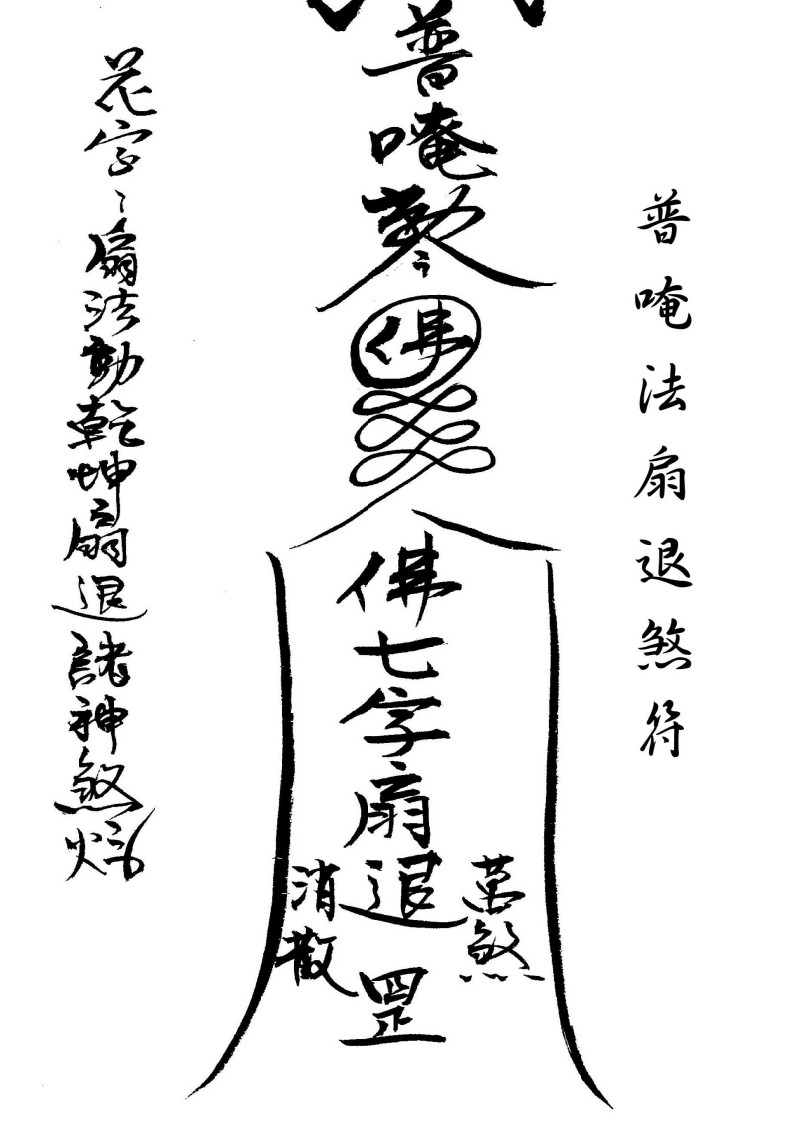 普唵法扇退煞符
普唵勅令
佛
佛七字扇退罡
萬煞
消散
花字〻扇法動乾坤扇退諸神煞